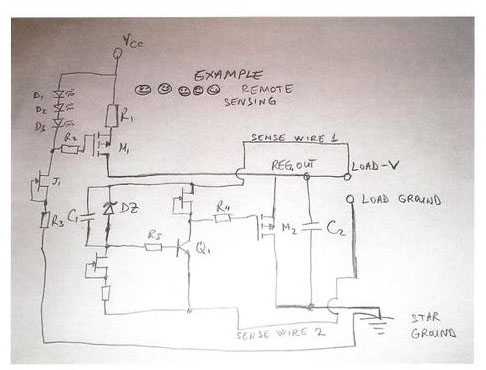 Vcc
EXAMPLE
REMOTE
SENSING
D1
D2
D3
R1
R2
M1
SENSE WIRE 1
REG.OUT
LOAD-V
LOAD GROUND
J1
R3
C1
DZ
R4
R5
Q1
M2
C2
SENSE WIRE 2
STAR
GROUND